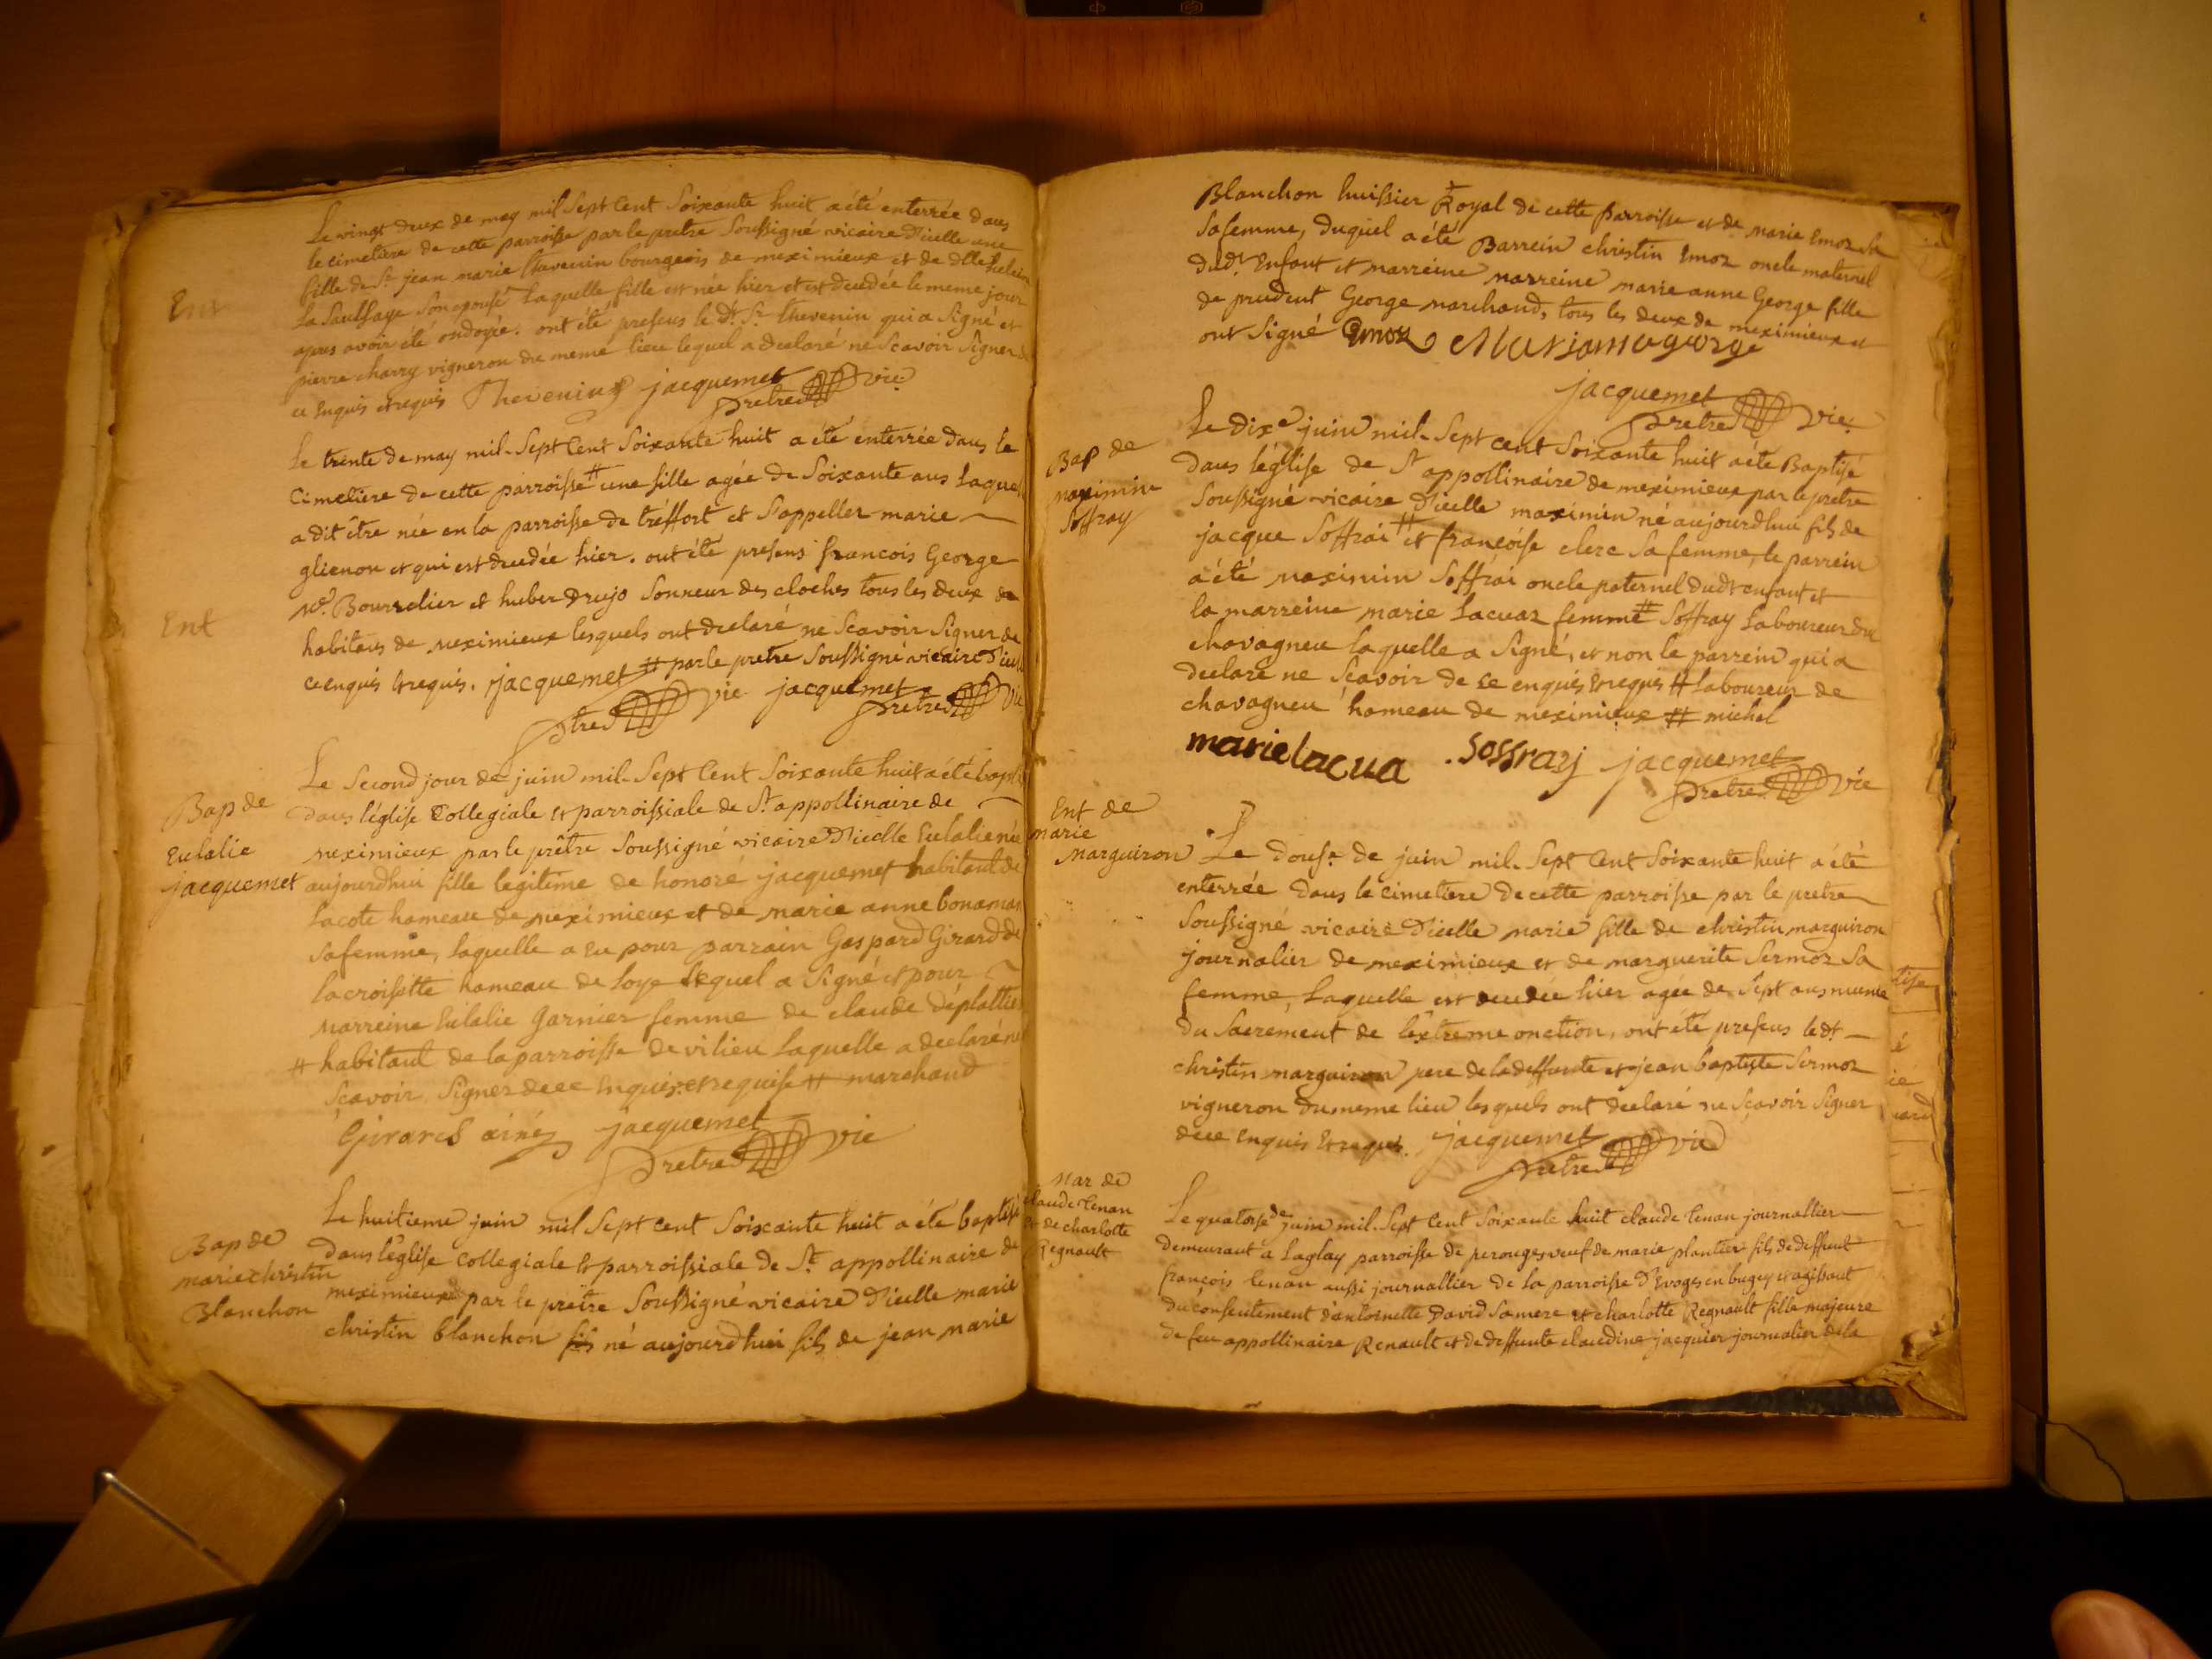 Ent
Le vingt deux de may mil Sept Cent Soixante huit a été enterrée dans
le cimetiere de cette parroisse par le pretre Soussigné vicaire D'icelle une
fille de Sr. jean marie thevenin bourgeois de meximieux et de dlle
La Saulsaye Son epouse Laquelle fille est née hier et est decedée le meme jour
apres avoir été ondoyée. ont été presens le dt. Sr. thevenin qui a Signé et
pierre charry vigneron du meme lieu lequel a declaré ne Scavoir Signer
ce Enquis et requis Thevenin jacquemet vic
pretre
Ent
Le trente de may mil Sept Cent Soixante huit a été enterrée dans le
Cimetiere de cette parroisse # une fille agée de Soixante ans Laquel
a dit être née en la parroisse de tréffort et S'appeller marie
glienon et qui est decedée hier. ont été presens francois George
me. Bourrelier et huber Drujo Sonneur des cloches tous les deux
habitans de meximieux lesquels ont declaré ne Scavoir Signer de
ce enquis et requis. jacquemet # par le pretre Soussigné vicaire D'icel
ptre vic jacquemet pretre vic
Bap de
Eulalie
jacquemet
Le Second jour de juin mil Sept Cent Soixante huit a été bapt
dans l'église Collegiale et parroissiale de St. appollinaire de
meximieux par le prêtre Soussigné vicaire D'icelle Eulalie née
aujourdhui fille legitime de honoré jacquemet habitant de
Lacote hameau de meximieux et de marie anne bonaman
Sa femme, Laquelle a Eu pour parrain Gaspard Girard de
la croisette hameau de Loye Lequel a Signé et pour
Marreine Eulalie Garnier femme de claude déplattie
# habitant de la parroisse de vilieu Laquelle a declaré ne
Scavoir Signer de ce Enquise et requise # marchand
Girard ainé jacquemet vic
pretre
Bap de
marie christin
Blanchon
Le huitieme juin mil Sept cent Soixante huit a été baptisé
dans l'église Collegiale et parroissiale de St. appollinaire de
meximieux par le prêtre Soussigné vicaire D'icelle marie
christin blanchon fils né aujourdhui fils de jean marie
Blanchon huissier Royal de cette parroisse et de marie Emoz Sa
Sa femme, duquel a été Parrein christin Emoz oncle maternel
dudt. Enfant et marreine marreine marie anne George fille
de prudent George marchand, tous les deux de meximieux et
ont Signé Emoz Mariannageorge
jacquemet
pretre vic.
Bap de
maximin
Soffray
Le dixe juin mil Sept cent Soixante huit a été Baptisé
dans l'église de St appollinaire de meximieux par le pretre
Soussigné vicaire D'icelle maximin né aujourdhui fils de
jacque Soffrai # et francoise clerc Sa femme, le parrein
a été maximin Soffrai oncle paternel dudt enfant et
la marreine marie Lacuaz femme # Soffray Laboureur du
chavagneu laquelle a Signé, et non le parrein qui a
declaré ne Scavoir de ce enquis et requis # laboureur de
chavagneu hameau de meximieux # michel
marie lacua soffray jacquemet
pretre vic
Ent de
marie
Marguiron
Le douse. de juin mil Sept Cent Soixante huit a été
enterrée dans le cimetiere de cette parroisse par le pretre
Soussigné vicaire D'icelle marie fille de christin marguiron
journalier de meximieux et de marguerite Sermoz Sa
femme, Laquelle est decedée hier agée de Sept ans munie
du Sacrement de l'extreme onction, ont été presens ledt.
christin marguiron pere de la deffunte et jean baptiste Sermoz
vigneron du meme lieu lesquels ont declaré ne Scavoir Signer
de ce Enquis et requis. jacquemet vic
pretre
Mar de
claude Cenan
et de charlotte
Regnault
Le quatorse de juin mil Sept Cent Soixante huit claude Cenan journallier
demeurant a Laglay parroisse de perouges veuf de marie plantier fils de deffunt
françois Cenan aussi journallier de la parroisse D'Evoges en bugey et agissant
du consentement d'antoinette David Sa mere et charlotte Regnault fille majeure
de feu appollinaire Renault et de deffunte claudine jacquier journalier de la